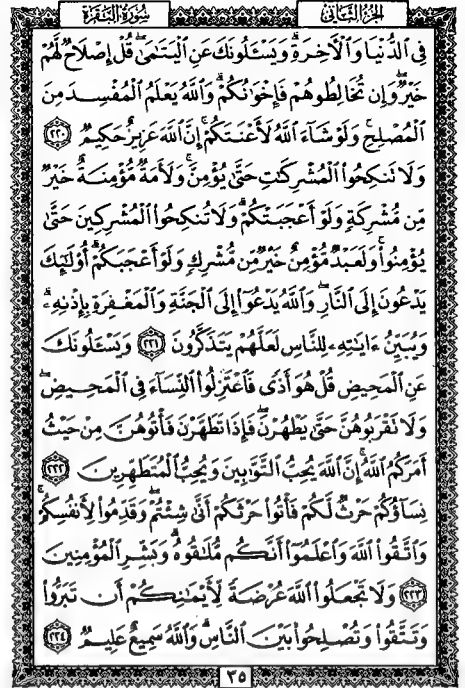 سُورَةُ البَقَرَةِ الجُزءُ الثَّانِي
فِي الدُّنْيَا وَالْآخِرَةِ ۗ وَيَسْـَٔلُونَكَ عَنِ الْيَتَـٰمَىٰ ۖ قُلْ إِصْلَاحٌ لَّهُمْ
خَيْرٌ ۖ وَإِن تُخَالِطُوهُمْ فَإِخْوَٰنُكُمْ ۚ وَاللَّهُ يَعْلَمُ الْمُفْسِدَ مِنَ
الْمُصْلِحِ ۚ وَلَوْ شَآءَ اللَّهُ لَأَعْنَتَكُمْ ۚ إِنَّ اللَّهَ عَزِيزٌ حَكِيمٌ ٢٢٠
وَلَا تَنكِحُوا۟ الْمُشْرِكَـٰتِ حَتَّىٰ يُؤْمِنَّ ۚ وَلَأَمَةٌ مُّؤْمِنَةٌ خَيْرٌ
مِّن مُّشْرِكَةٍ وَلَوْ أَعْجَبَتْكُمْ ۗ وَلَا تُنكِحُوا۟ الْمُشْرِكِينَ حَتَّىٰ
يُؤْمِنُوا۟ ۚ وَلَعَبْدٌ مُّؤْمِنٌ خَيْرٌ مِّن مُّشْرِكٍ وَلَوْ أَعْجَبَكُمْ ۗ أُو۟لَـٰٓئِكَ
يَدْعُونَ إِلَى النَّارِ ۖ وَاللَّهُ يَدْعُوٓا۟ إِلَى الْجَنَّةِ وَالْمَغْفِرَةِ بِإِذْنِهِۦ ۖ
وَيُبَيِّنُ ءَايَـٰتِهِۦ لِلنَّاسِ لَعَلَّهُمْ يَتَذَكَّرُونَ ٢٢١ وَيَسْـَٔلُونَكَ
عَنِ الْمَحِيضِ ۖ قُلْ هُوَ أَذًى فَاعْتَزِلُوا۟ النِّسَآءَ فِي الْمَحِيضِ ۖ
وَلَا تَقْرَبُوهُنَّ حَتَّىٰ يَطْهُرْنَ ۖ فَإِذَا تَطَهَّرْنَ فَأْتُوهُنَّ مِنْ حَيْثُ
أَمَرَكُمُ اللَّهُ ۚ إِنَّ اللَّهَ يُحِبُّ التَّوَّٰبِينَ وَيُحِبُّ الْمُتَطَهِّرِينَ ٢٢٢
نِسَآؤُكُمْ حَرْثٌ لَّكُمْ فَأْتُوا۟ حَرْثَكُمْ أَنَّىٰ شِئْتُمْ ۖ وَقَدِّمُوا۟ لِأَنفُسِكُمْ ۚ
وَاتَّقُوا۟ اللَّهَ وَاعْلَمُوٓا۟ أَنَّكُم مُّلَـٰقُوهُ ۗ وَبَشِّرِ الْمُؤْمِنِينَ
٢٢٣ وَلَا تَجْعَلُوا۟ اللَّهَ عُرْضَةً لِّأَيْمَـٰنِكُمْ أَن تَبَرُّوا۟
وَتَتَّقُوا۟ وَتُصْلِحُوا۟ بَيْنَ النَّاسِ ۗ وَاللَّهُ سَمِيعٌ عَلِيمٌ ٢٢٤
٣٥